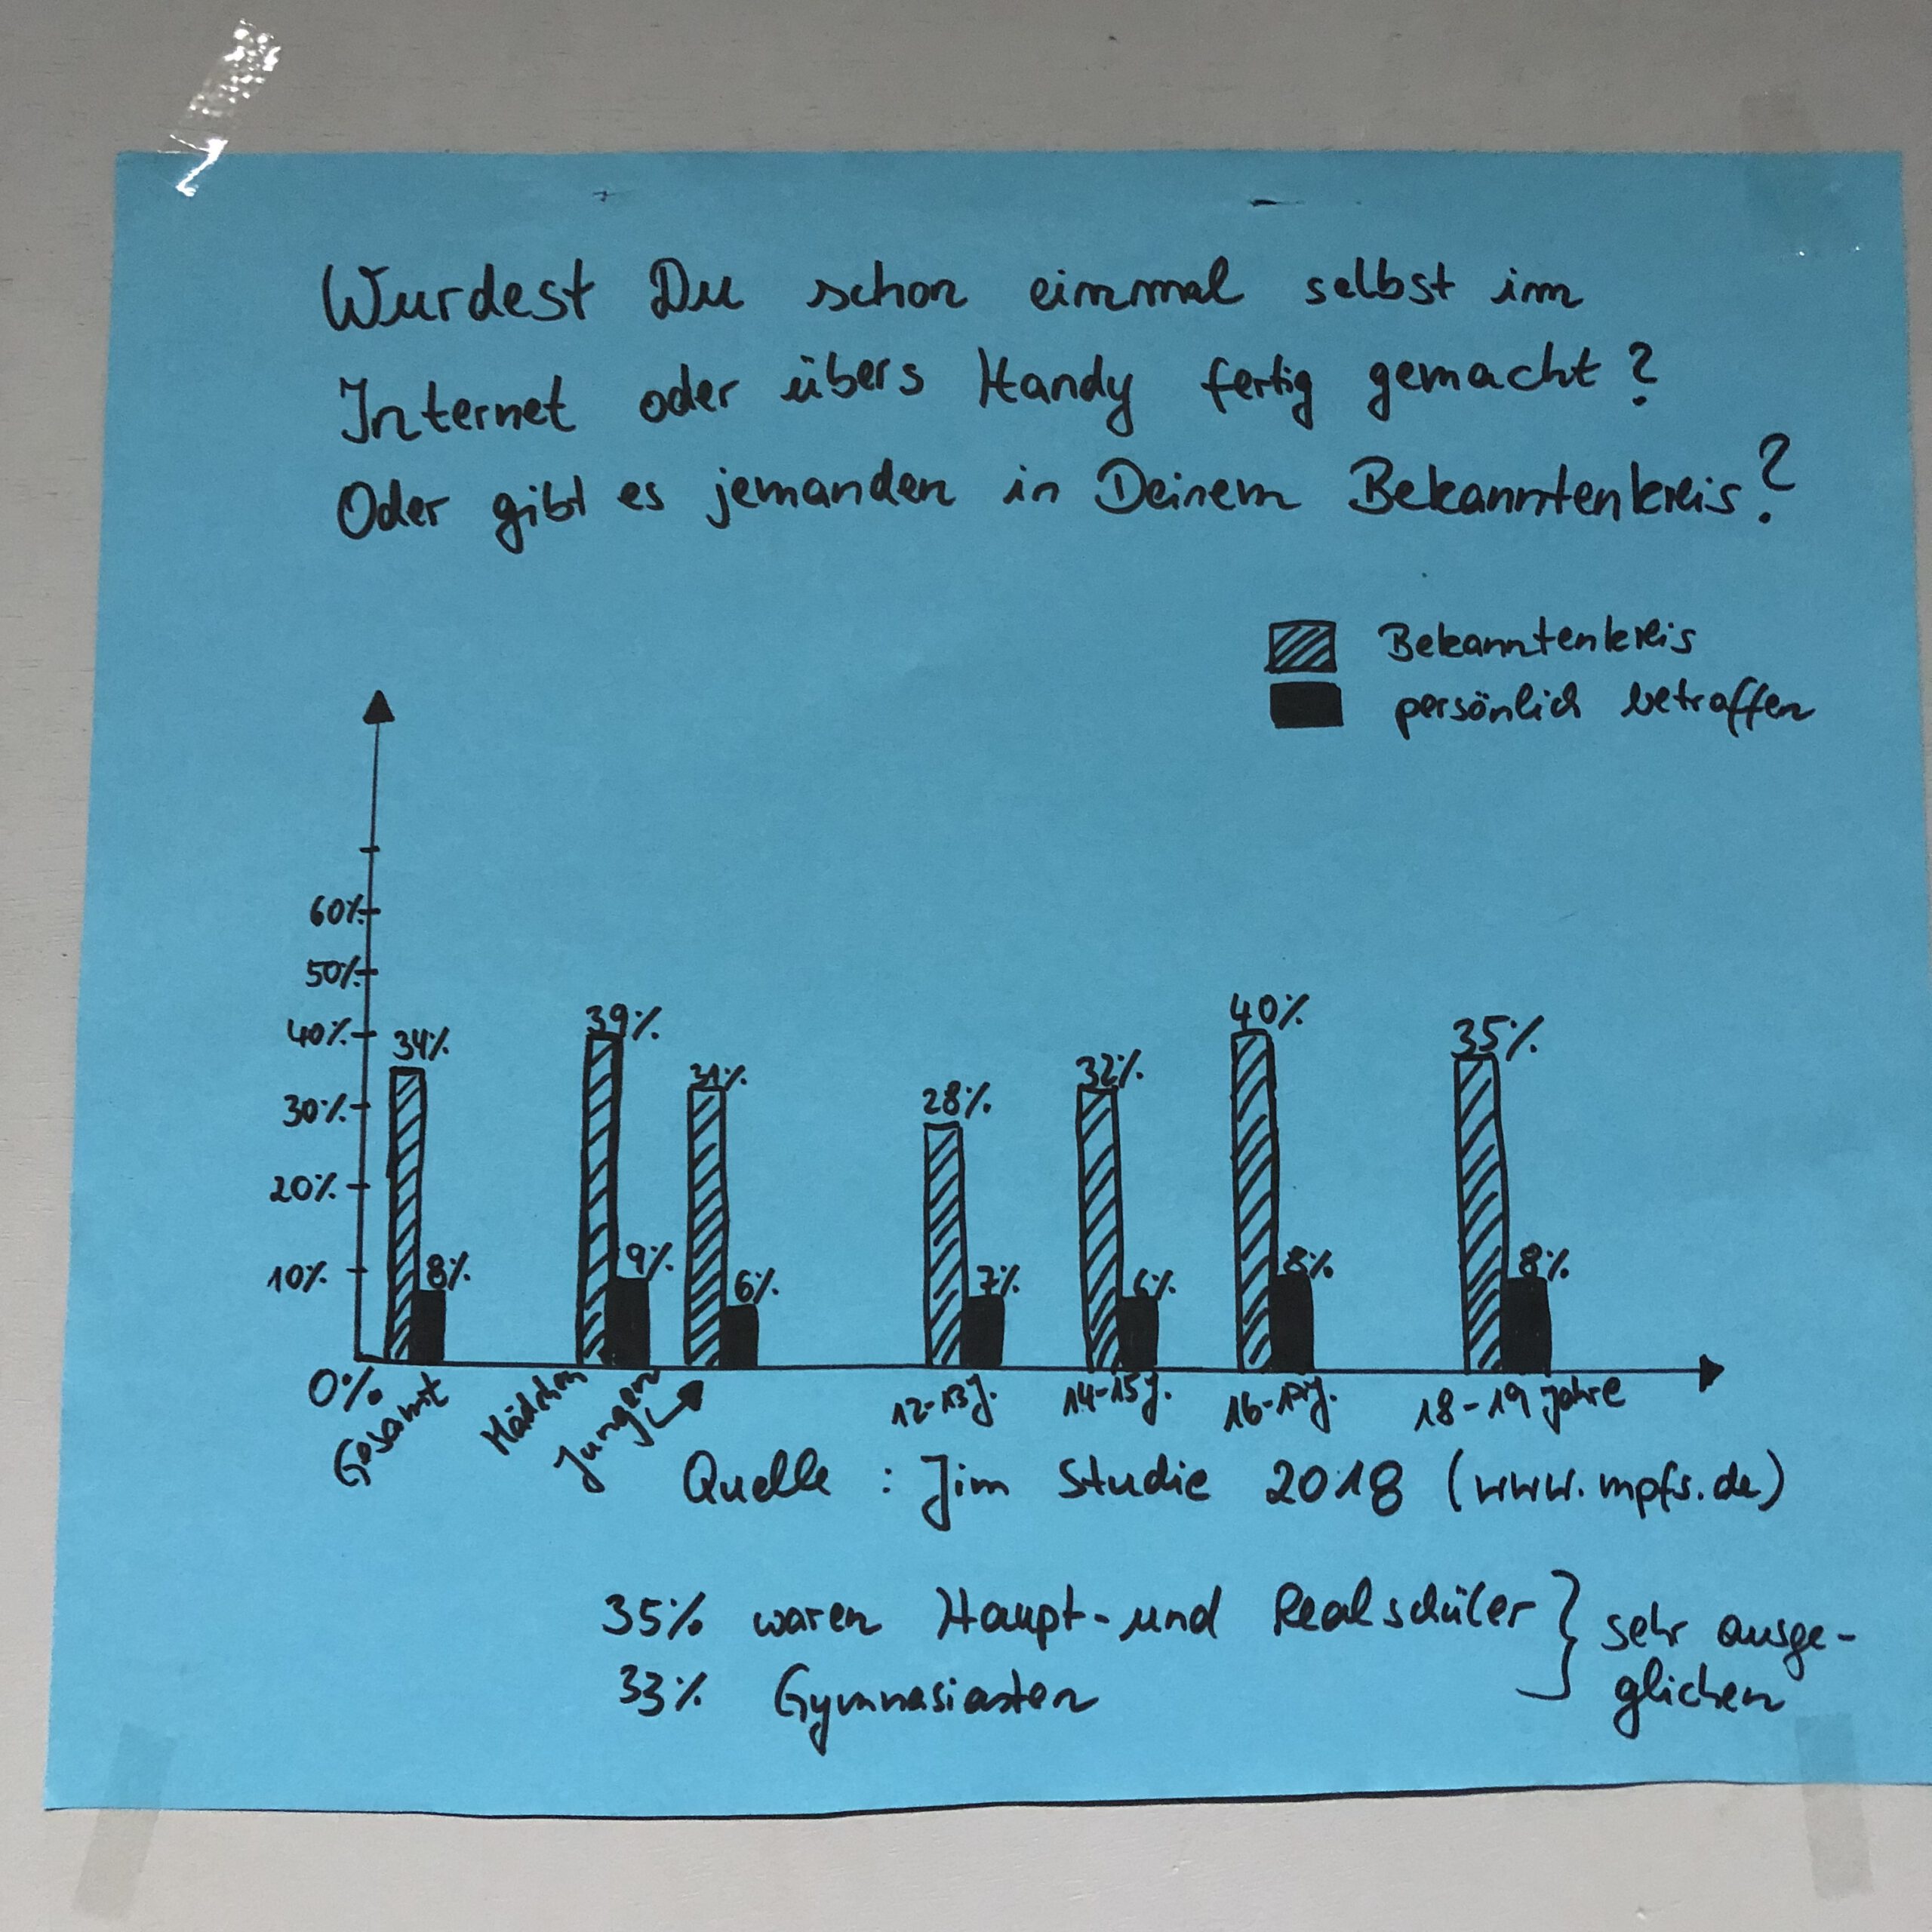 Wurdest Du schon einmal selbst im
Internet oder übers Handy fertig gemacht?
Oder gibt es jemanden in Deinem Bekanntenkreis?
Bekanntenkreis
persönlich betroffen
60%
50%
40%
30%
20%
10%
0%
34%
8%
39%
9%
31%
6%
28%
7%
32%
6%
40%
8%
35%
8%
Gesamt
Mädchen
Jungen
12-13J.
14-15J.
16-17J.
18-19 Jahre
Quelle : Jim Studie 2018 (www.mpfs.de)
35% waren Haupt- und Realschüler
33% Gymnasiasten
sehr ausge-
glichen